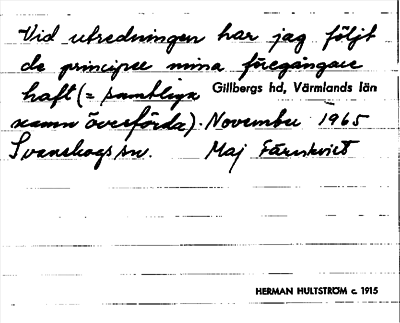 Vid utredningen har jag följt
de principer mina föregångare
haft (= samtliga Gillbergs hd, Värmlands län
namn överförda). November 1965
Svanskogs sn. Maj Färnkvist
HERMAN HULTSTRÖM c. 1915